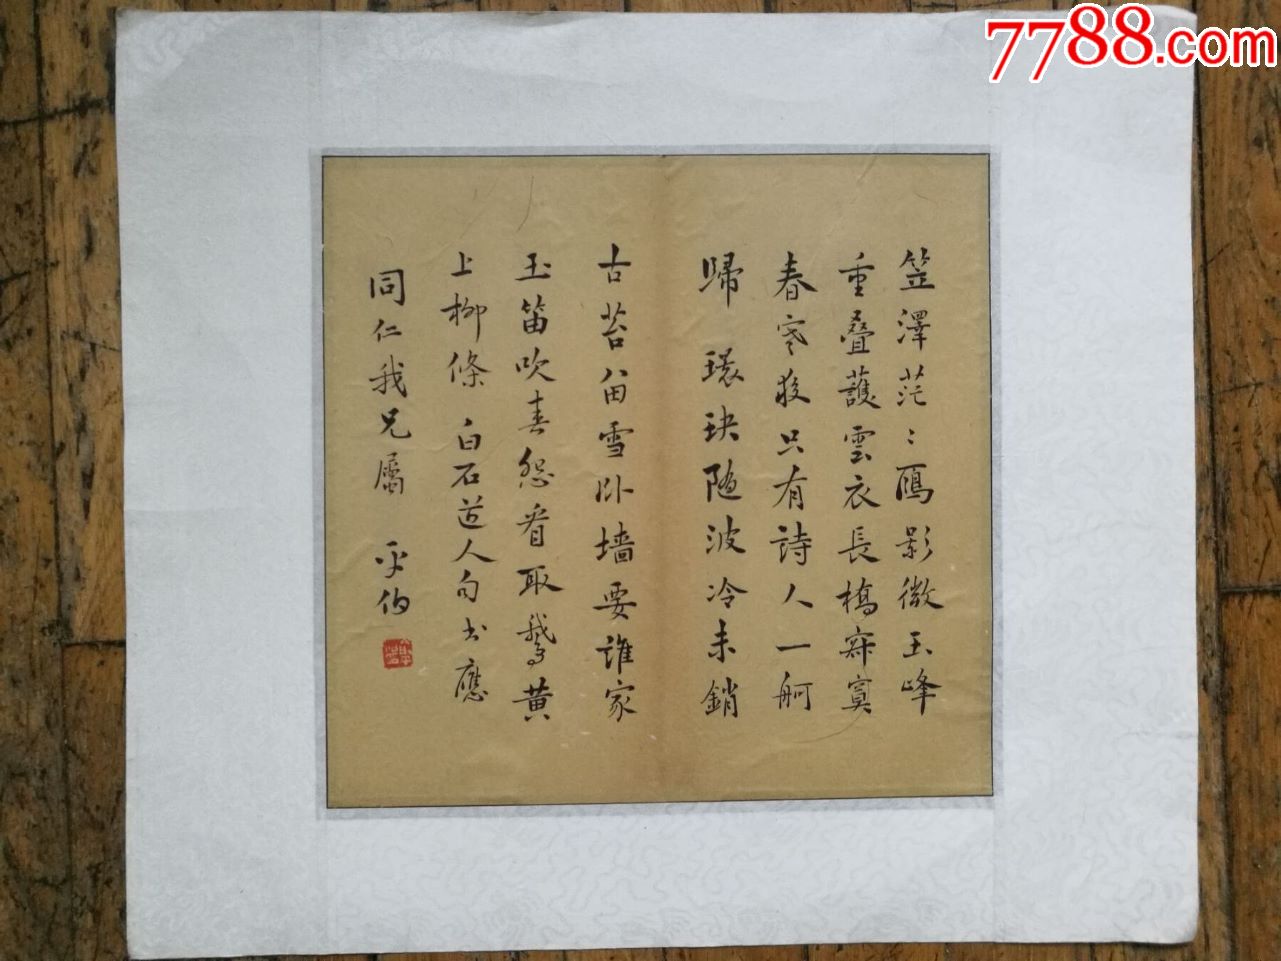 7788.com
笠澤茫〻鴈影微玉峰
重叠護雲衣長橋寂寞
春寒夜只有詩人一舸
歸 環玦随波冷未銷
古苔留雪卧墙要誰家
玉笛吹春怨看取鵞黄
上柳條 白石道人句书應
同仁我兄屬 平伯